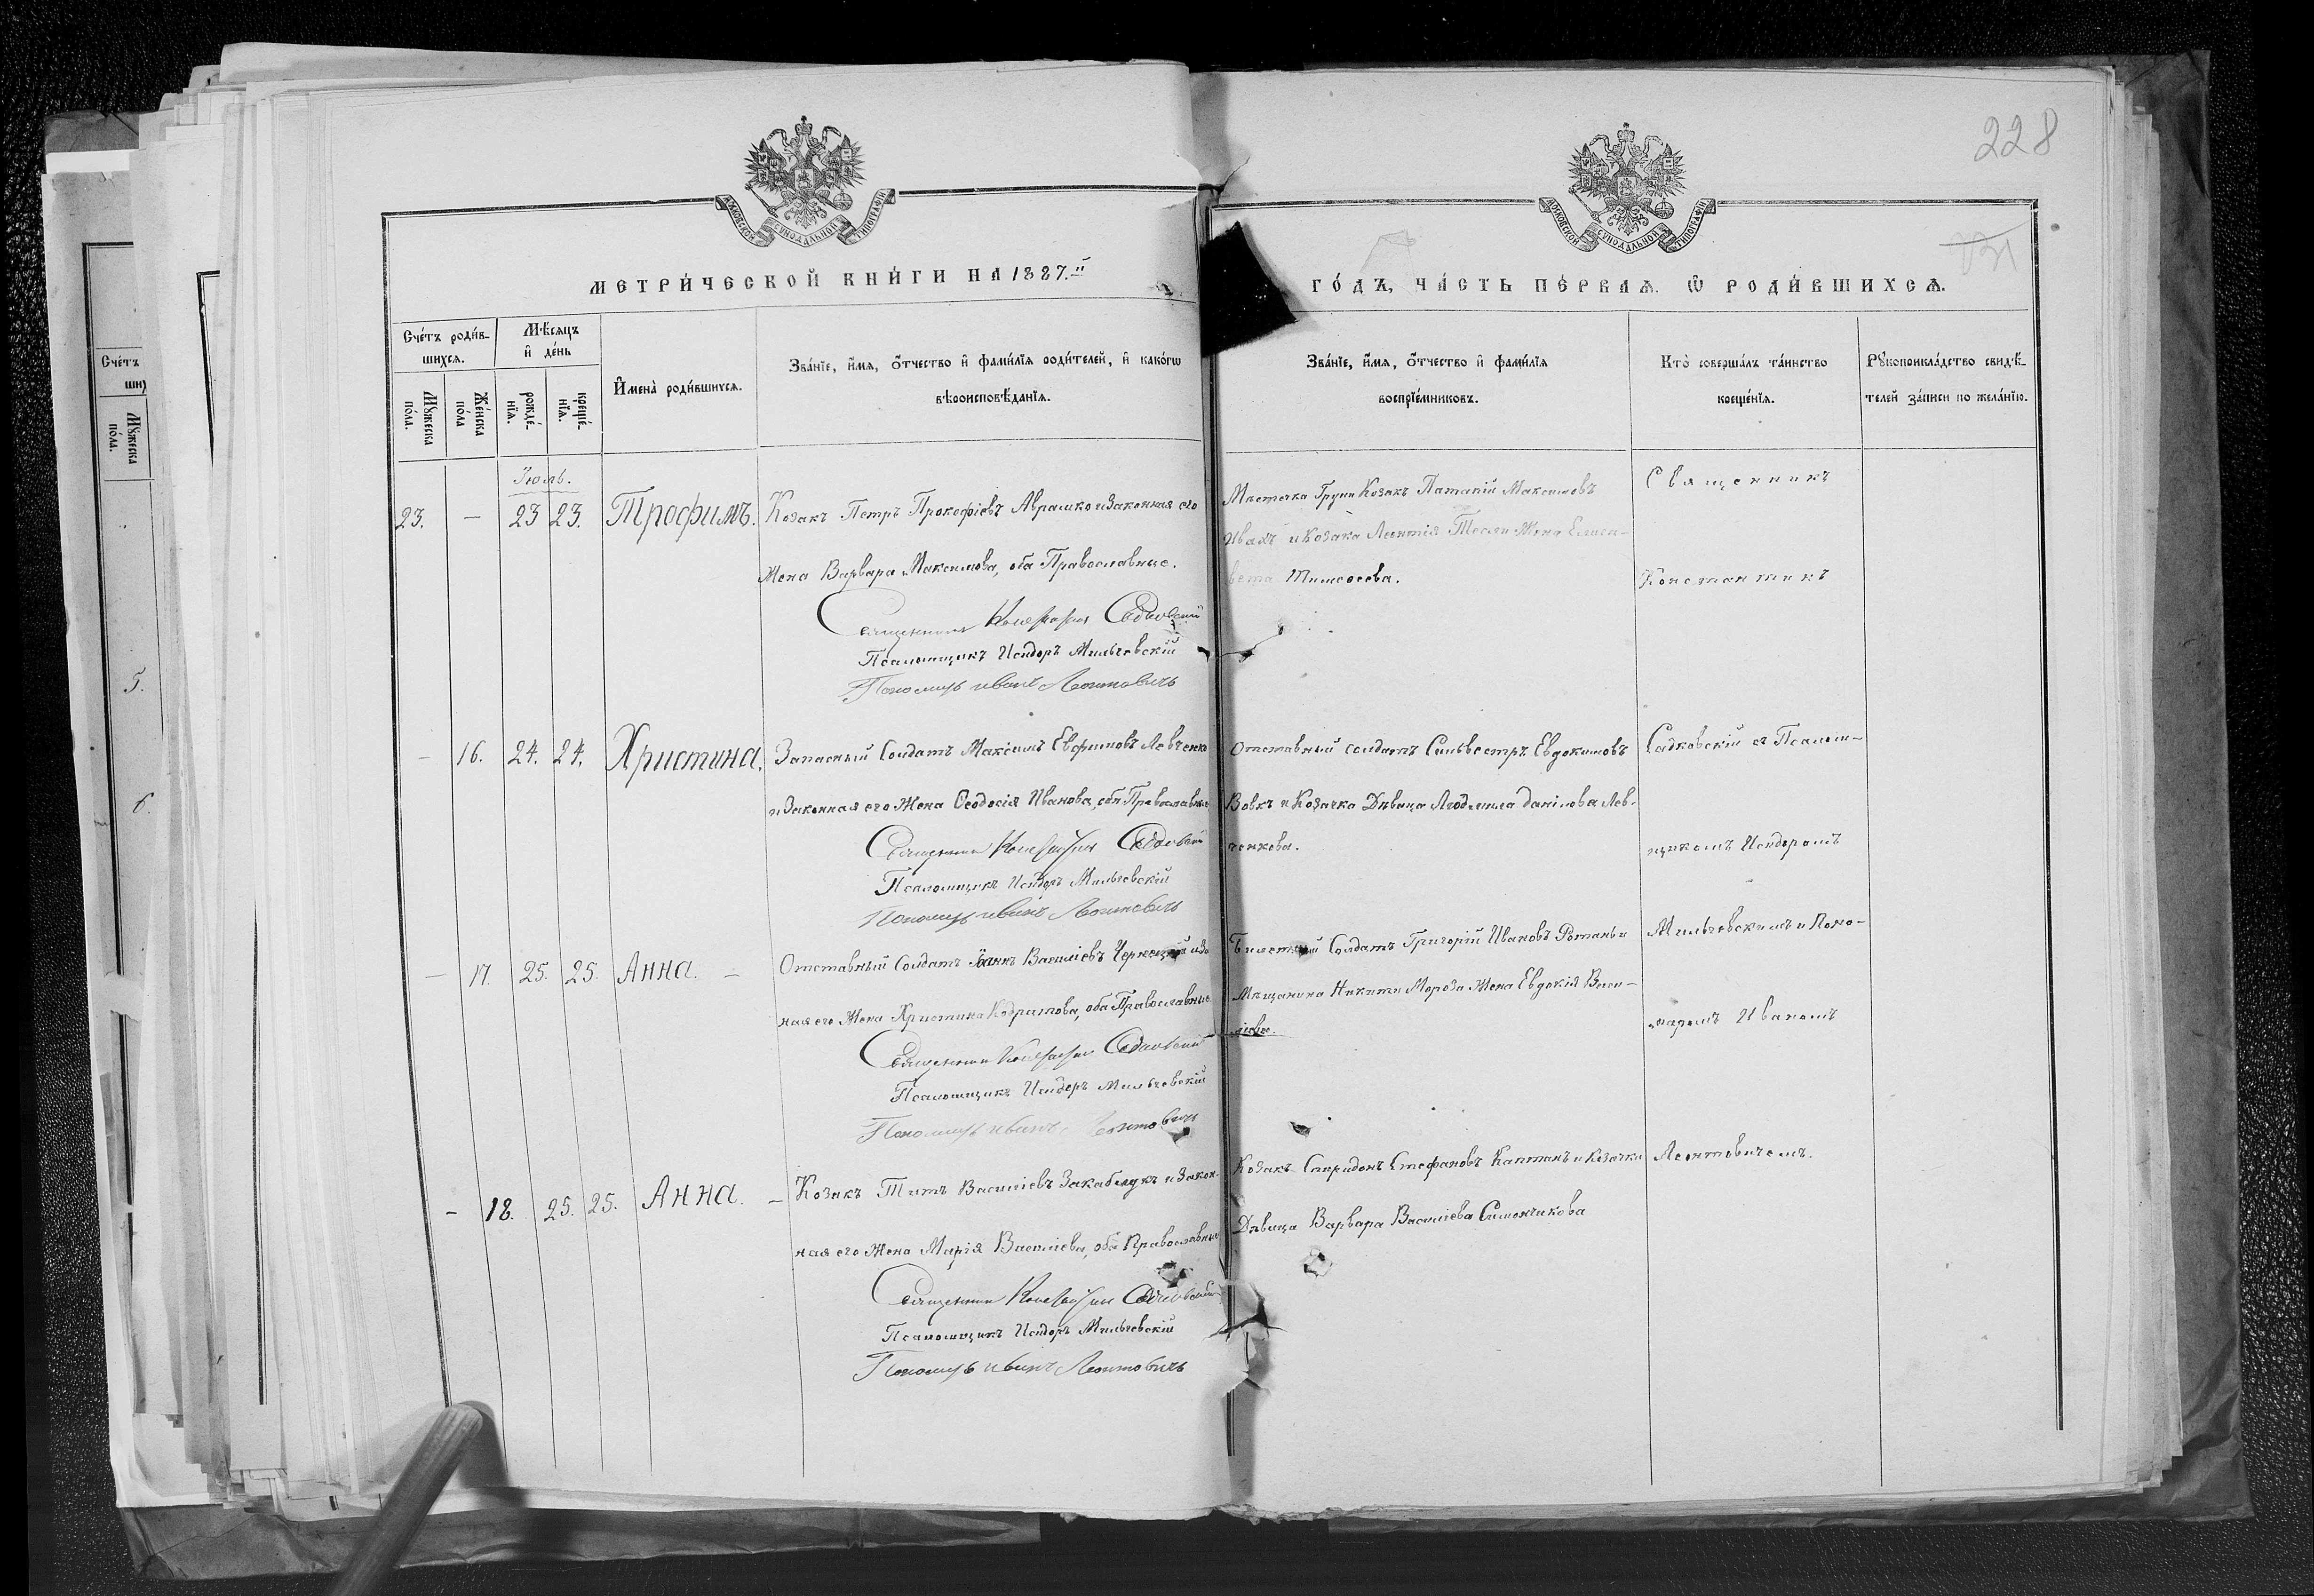 228
МОСКОВСКОЙ СѴНОДАЛЬНОЙ ТИПОГРАФІИ
МОСКОВСКОЙ СѴНОДАЛЬНОЙ ТИПОГРАФІИ
МЕТРИ́ЧЕСКОЙ КНИ́ГИ НА 1887.й
ГО́ДЪ, ЧА́СТЬ ПЕ́РВАѦ. Ѿ РОДИ́ВШИХСѦ.
Сче́тъ роди́в-
шихсѧ.
Мѣ́сѧцъ
и҆ де́нь
Мꙋ́жеска по́ла.
Же́нска по́ла
рожде́-
нїѧ.
креще́-
нїѧ.
И҆мена̀ роди́вшихсѧ.
Зва́нїе, и҆́мѧ, ѻ҆́тчество и҆ фами́лїѧ роди́телей, и҆ како́гѡ
вѣроисповѣ́данїѧ.
Зва́нїе, и҆́мѧ, ѻ҆́тчество и҆ фами́лїѧ
воспрїе́мниковъ.
Кто̀ соверша́лъ та́инство
креще́нїѧ.
Рꙋкоприкла́дство свидѣ́-
телей за́писи по жела́нїю.
Сче́тъ
ших
Мꙋ́жеска по́ла.
5.
6.
Іюль.
23. — 23 23. Трофимъ. Козакъ Петръ Прокофіевъ Аврашко и Законная его
Жена Варвара Максимова, оба Православные.
Священникъ Садковскій
Псаломщикъ Исидоръ Мильчевскій
Пономарь Иванъ Леонтовичъ
Козакъ Максимовъ
и Козака Леонтія Жена Елиса-
вета Тимофеева.
Священникъ
Константинъ
— 16. 24. 24. Христина. Запасный Солдатъ Максимъ Евфимовъ Левченко
и Законная его Жена Феодосія Иванова, оба Православные
Священникъ Садковскій
Псаломщикъ Исидоръ Мильчевскій
Пономарь Иванъ Леонтовичъ
Отставный солдатъ Сильвестръ Евдокимовъ
Вовкъ и Козачка Дѣвица Людмила Данілова Лев-
ченкова.
Садковскій съ Псалом-
щикомъ Исидоромъ
— 17. 25. 25. Анна. — Отставный Солдатъ Василіевъ
ная его Жена Христина Кодратова, оба Православные
Священникъ Садковскій
Псаломщикъ Исидоръ Мильчевскій
Пономарь Иванъ Леонтовичъ
Билетный Солдатъ Григорій Ивановъ
Мѣщанина Никиты Мороза Жена Евдокія Васи-
лієва.
Мильчевскимъ и Поно-
маремъ Иваномъ
— 18. 25. 25. Анна. — Козакъ Титъ Василіевъ Закаблукъ и Закон-
ная его Жена Марія Василіева, оба Православные
Священникъ Садковскій
Псаломщикъ Исидоръ Мильчевскій
Пономарь Иванъ Леонтовичъ
Козакъ Спиридонъ Стефановъ Каптанъ и Козачка
Дѣвица Варвара Василіева Симончикова
Леонтовичемъ.